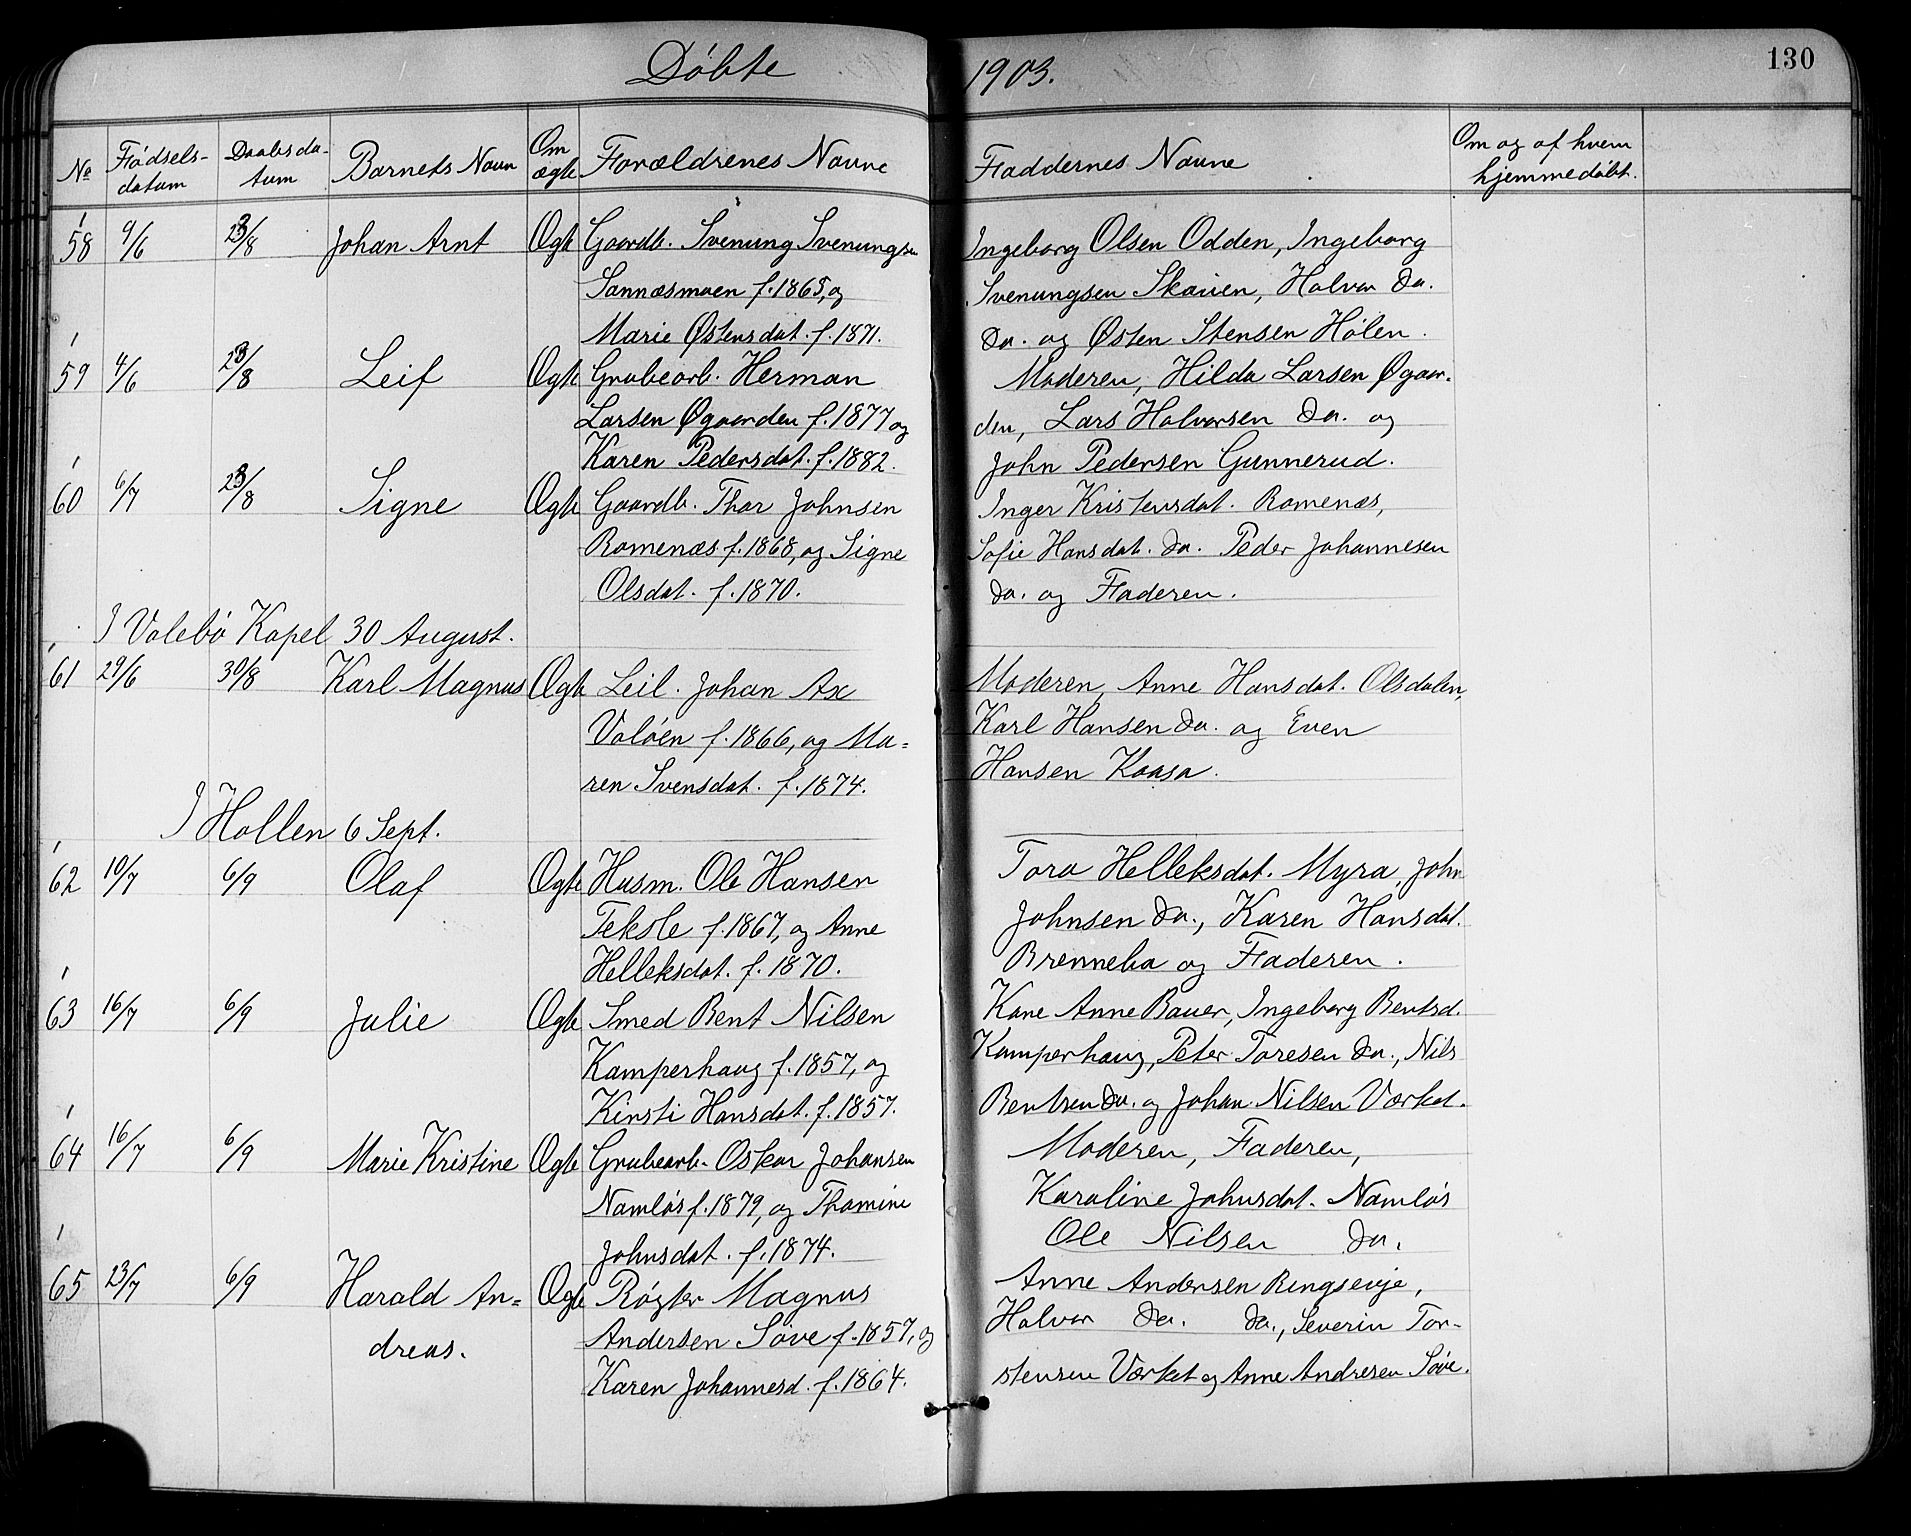 Døbte 1903. 130
№ Fødsels-datum Daabsda-tum Barnets Navn Om ægte Forældrenes Navne Faddernes Navne Om og af hvem hjemmedøbt.
58 9/6 23/8 Johan Arnt Ægte Gaardb. Svenung Svenungsen Ingeborg Olsen Odden, Ingeborg
Sannæsmoen f. 1865, og Svenungsen Skauen, Halvor Do.
Marie Østensdat. f. 1871. Do. og Østen Stensen Hølen.
59 4/6 23/8 Leif Ægte Grubearb. Herman Moderen, Hilda Larsen Øgaar-
Larsen Øgaarden f. 1877 og den, Lars Halvorsen Do. og
Karen Pedersdat. f. 1882. John Pedersen Gunnerud.
60 6/7 23/8 Signe Ægte Gaardb. Thor Johnsen Inger Kristensdat. Romenæs,
Romenæs f. 1868, og Signe Sofie Hansdat. Do. Peder Johannesen
Olsdat. f. 1870. Do. og Faderen.
I Valebø Kapel 30 August.
61 29/6 30/8 Karl Magnus Ægte Leil. Johan Ax Moderen, Anne Hansdat. Olsdalen,
Valøen f. 1866, og Ma= Karl Hansen Do. og Even
ren Svensdat. f. 1874. Hansen Kaasa.
I Hollen 6 Sept.
62 10/7 6/9 Olaf Ægte Husm. Ole Hansen Tora Helleksdat. Myra, John
Teksle f. 1867, og Anne Johnsen Do., Karen Hansdat.
Helleksdat. f. 1870. Brenneba og Faderen.
63 16/7 6/9 Julie Ægte Smed Bent Nilsen Kone Anne Bauer, Ingeborg Bentsd.
Kamperhaug f. 1857, og Kamperhaug, Peter Toresen Do., Nils
Kirsti Hansdat. f. 1857. Bentsen Do. og Johan Nilsen Værket.
64 16/7 6/9 Marie Kristine Ægte Grubearb. Oskar Johansen Moderen, Faderen,
Namløs f. 1879, og Thomine Karoline Johnsdat. Namløs
Johnsdat. f. 1874. Ole Nilsen Do.
65 23/7 6/9 Harald An= Ægte Røgter Magnus Anne Andersen Ringseje,
dreas. Andersen Søve f. 1857, og Halvor Do. Do., Severin Tor-
Karen Johannesd. f. 1864. stensen Værket og Anne Andresen Søve.